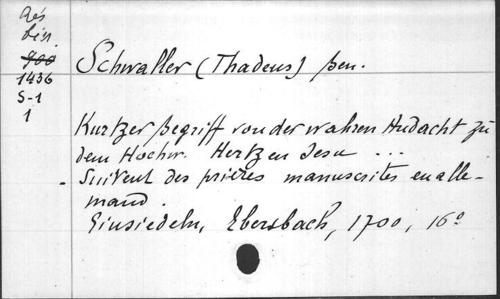 Rés
bin.
900
1436
S-1
1
Schwaller (Thadeus) sen.
Kurtzer Begriff von der wahren Andacht zu
dem Hochw. Hertzen Jesu ...
Suivent des prières manuscrites en alle-
mand.
Einsiedeln, Ebersbach, 1700, 16°